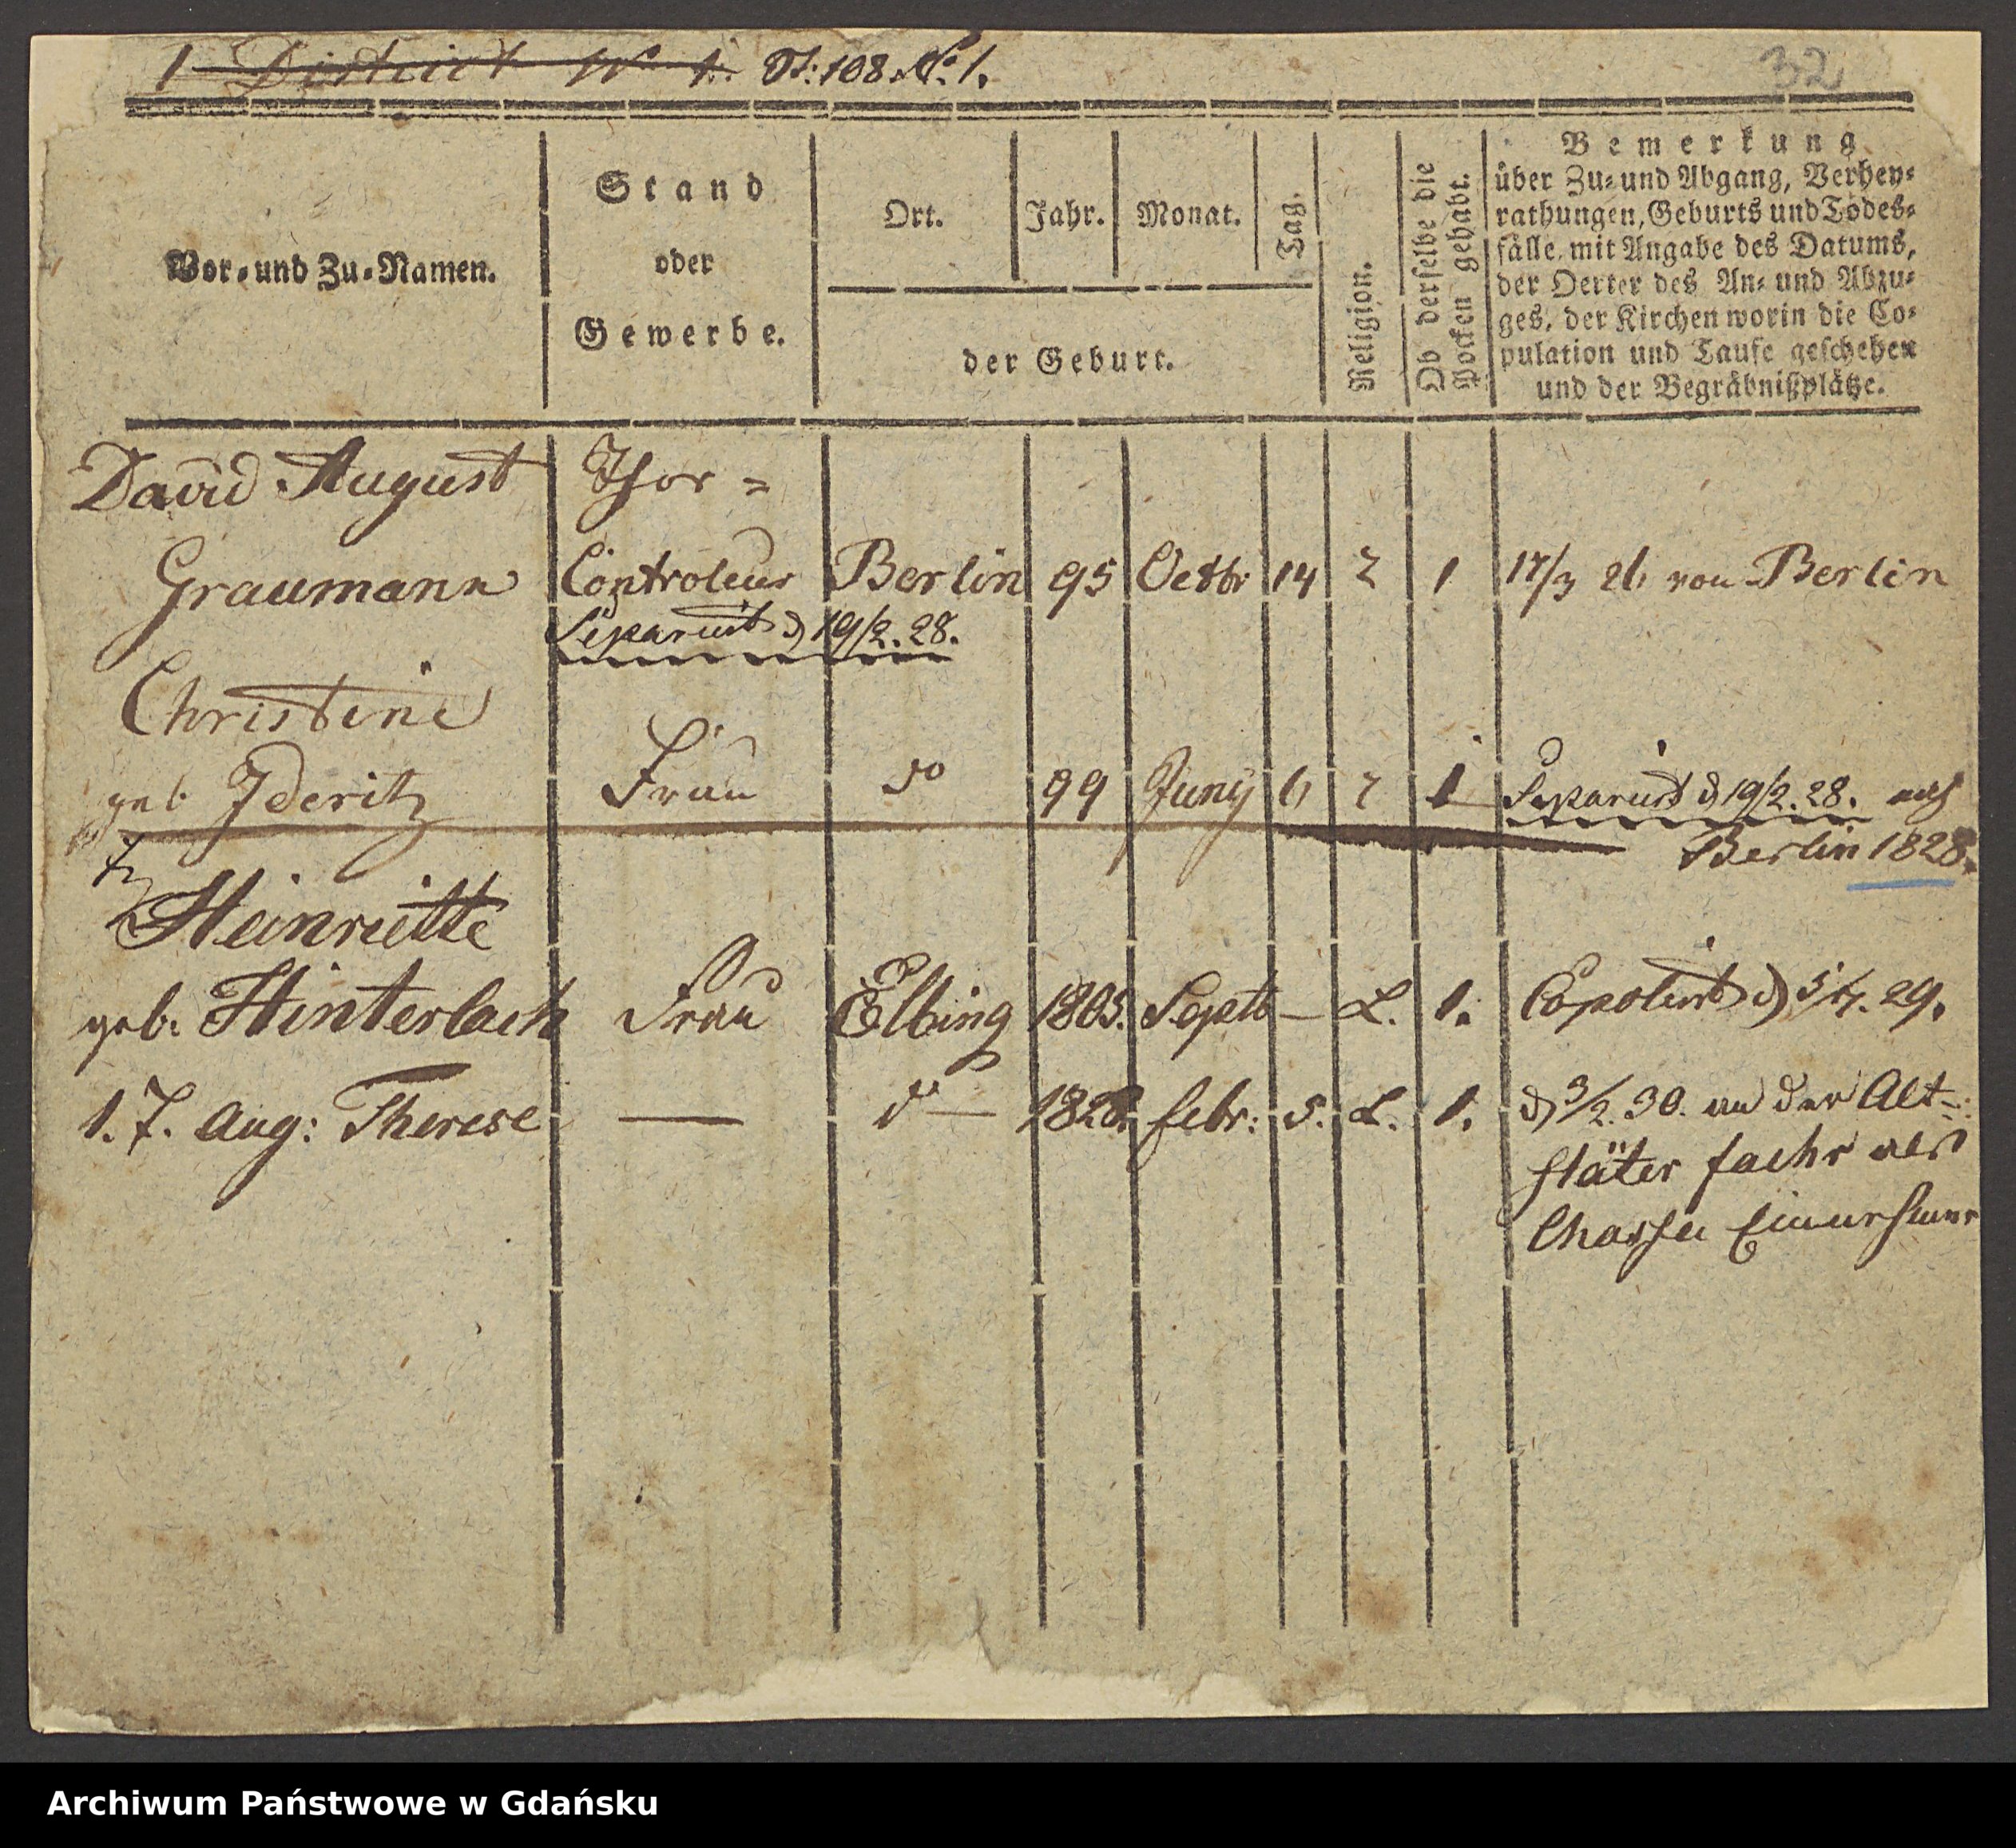 1 District No 1. St: 108 No 1.
32
Vor- und Zu-Namen.
Stand
oder
Gewerbe.
Ort.
Jahr.
Monat.
Tag.
der Geburt.
Religion.
Ob derselbe die
Pocken gehabt.
Bemerkung
über Zu- und Abgang, Verhey-
rathungen, Geburts und Todes-
fälle, mit Angabe des Datums,
der Oerter des An- und Abzu-
ges, der Kirchen worin die Co-
pulation und Taufe geschehen
und der Begräbnißplätze.
David August Thor =
Graumann Controleur Berlin 95 Octbr 14 2 1 17/3 26 von Berlin
Separirt d 19/2. 28.
Christine
geb Jderitz Frau do 99 Juny 6 2 1 Separirt d 19/2. 28. nach
Berlin 1828.
Heinriette
geb. Hinterlach Frau Elbing 1805. Septb — L. 1. Copolirt d 5/4. 29.
1. T. Aug: Therese — do — 1828. febr: 5. L. 1. d 3/2. 30. an der Alt-
stäter als
Chassee Einnehmer